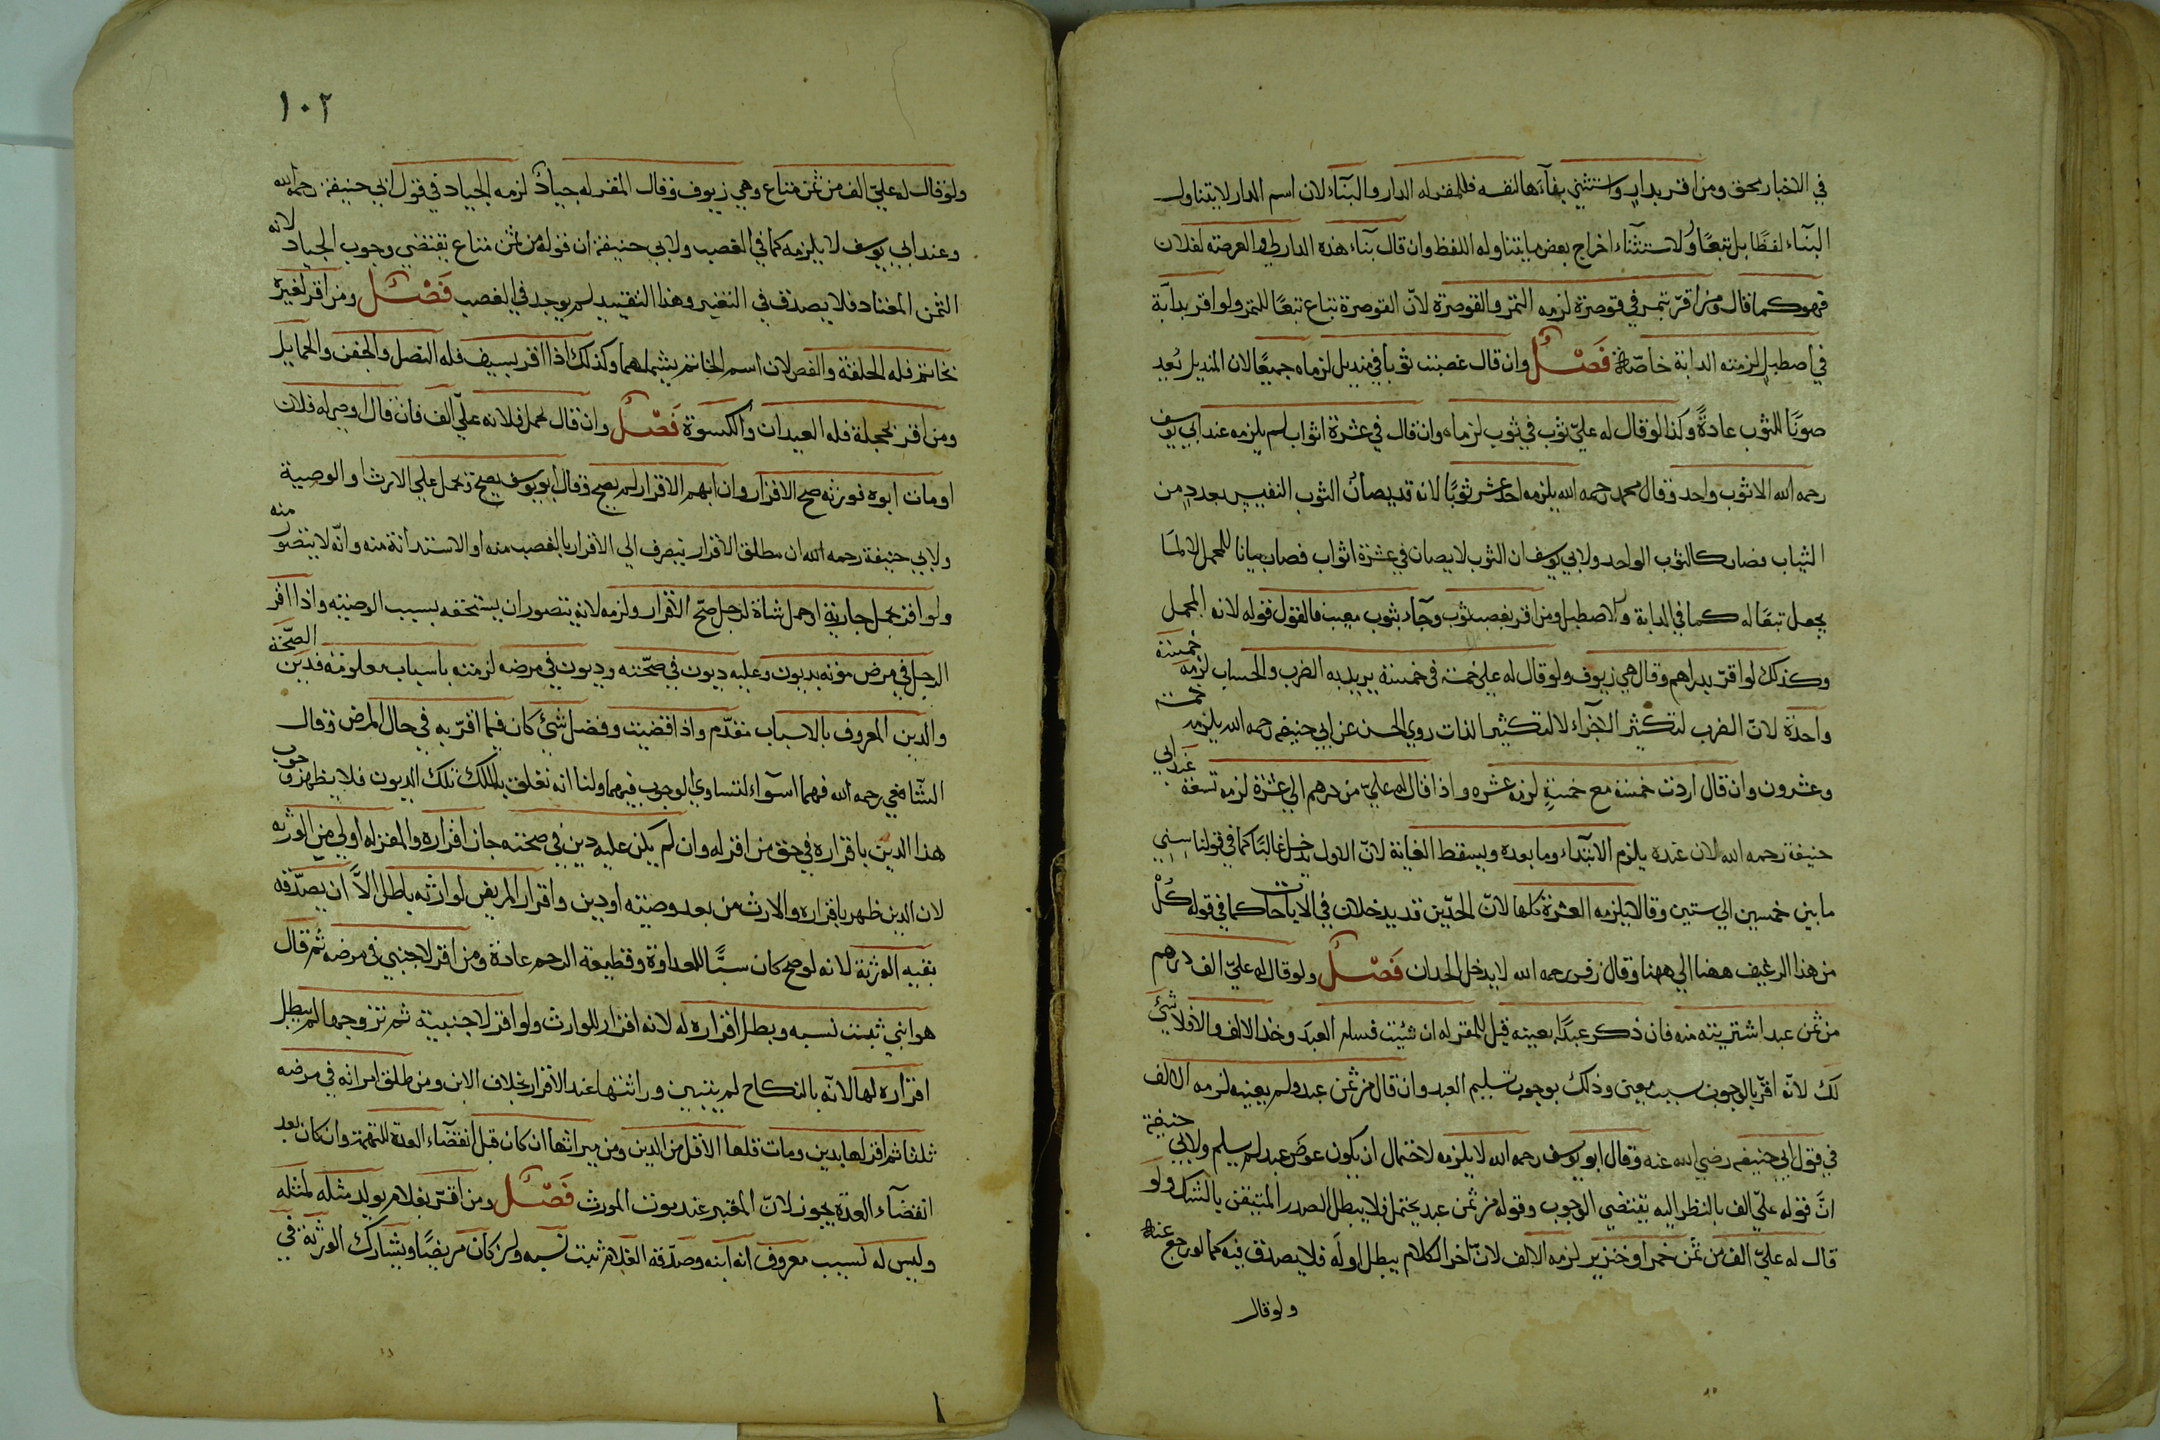 في الاخبار بحق ومن اقر بدار واستثنى بناءها لنفسه فللمقر له الدار والبناء لان اسم الدار لا يتناول
البناء لفظًا بل تبعًا والاستثناء اخراج بعض ما يتناوله اللفظ وان قال بناء هذه الدار لي والعرصة لفلان
فهو كما قال ومن اقرّ بتمر في قوصرة لزمه التمر والقوصرة لانّ القوصرة تباع تبعًا للتمر ولو اقر بدابّة
في اصطبل لزمته الدابة خاصّة فَصْلٌ وان قال غصبت ثوبا في منديل لزماه جميعًا لان المنديل يُعد
صونًا للثوب عادةً وكذا لو قال له عليّ ثوب في ثوب لزماه وان قال في عشرة اثواب لم يلزمه عند ابي يوسف
رحمه الله الا ثوب واحد وقال محمد رحمه الله يلزمه احد عشر ثوبًا لانه قد يصان الثوب النفيس بعدد من
الثياب فصار كالثوب الواحد ولابي يوسف ان الثوب لا يصان في عشرة اثواب فصار بيانا للمحمل لا لما
يجعل تبعًا له كما في الدابة والاصطبل ومن اقر بغصب ثوب وجاء بثوب معيب فالقول قوله لانه المجمل
وكذلك لو اقرّ بدراهم وقال هي زيوف ولو قال له علي خمسة في خمسة يريد به الضرب والحساب لزمه خمسة
واحدة لانّ الضرب لتكثير الاجزاء لا لتكثير الذات روي الحسن عن ابي حنيفه رحمه الله يلزمه خمسة
وعشرون وان قال اردت خمسة مع خمسةٍ لزمه عشره واذا قال له عليّ من درهم الي عشرة لزمه تسعة عند ابي
حنيفة رحمه الله لان عنده يلزم الابتداء وما بعده ويسقط الغاية لانّ الاول يدخل غالبًا كما في قولنا سني
ما بين خمسين الي ستين وقالا يلزمه العشرة كلها لانّ الحدّين قد يدخلان في الاباحات كما في قوله كُلْ
من هذا الرغيف ههنا الي ههنا وقال زفر رحمه الله لا يدخل الحدان فَصْلٌ ولو قال له عليّ الف درهم
من ثمن عبد اشتريته منه فان ذكر عبدًا بعينه قيل للمقر له ان شئت فسلم العبدَ وخذ الالف والا فلا شئ
لك لانّه اقرّ بالوجوب بسبب معين وذلك بوجوب تسليم العبد وان قال من ثمن عبد ولم يعينه لزمه الالف
في قول ابي حنيفه رضي الله عنه وقال ابو يوسف رحمه الله لا يلزمه لاحتمال ان يكون عوض عبد لم يسلم ولابي حنيفة
انّ قوله عليّ الف بالنظر اليه يقتضي الوجوب وقوله من ثمن عبد يحتمل فلا يبطل الصدر المتيقن بالشك ولو
قال له عليّ الف من ثمن خمر او خنزير لزمه الالف لانّ اخر الكلام يبطل اوله فلا يصدق فيه كما لو رجع عنه
ولو قال
١٠٢
ولو قال له عليّ الف من ثمن متاع وهي زيوف وقال المقر له جيادٌ لزمه الجياد في قول ابي حنيفة رحمه الله
وعند ابي يوسف لا يلزمه كما في الغصب ولابي حنيفة ان قوله من ثمن متاع يقتضي وجوب الجياد لانه
الثمن المعتاد فلا يصدق في التغير وهذا التقييد لم يوجد في الغصب فَصْلٌ ومن اقر لغيره
بخاتم فله الحلقة والفص لان اسم الخاتم يشملهما وكذلك اذا اقر بسيف فله النصل والجفن والحمايل
ومن اقر بحجلة فله العيدان والكسوة فَصْلٌ وان قال لحمل فلانه عليّ الف فان قال اوصي له فلان
او مات ابوه فورثه صح الاقرار وان ابهم الاقرار لم يصح وقال ابو يوسف يصح ويحمل علي الارث او الوصية
ولابي حنيفة رحمه الله ان مطلق الاقرار ينصرف الي الاقرار بالغصب منه او الاستدانة منه وانّه لا يتصور منه
ولو اقر بحمل جارية او حمل شاة لرجل صحّ الاقرار ولزمه لانه يتصور ان يستحقه بسبب الوصية واذا اقر
الرجل في مرض موته بديون وعليه ديون في صحّته وديون في مرضه لزمته باسباب معلومة فدين الصحّة
والدين المعروف بالاسباب مقدّم واذا قضيت وفضل شئ كان فيما اقرّ به في حال المرض وقال
الشافعي رحمه الله فهما سواء لتساوي الوجوب فيهما ولنا انه تعلق بالملك تلك الديون فلا يظهر وجوب
هذا الدين باقراره في حق من اقر له وان لم يكن عليه دين في صحته جاز اقراره والمقر له اولي من الورثه
لان الدين ظهر باقراره والارث من بعد وصيته او دين واقرار المريض لوارثه باطل الاّ ان يصدّقه
بقيه الورثة لانه لو صح كان سببًا للعداوة وقطيعة الرحم عادة ومن اقر لاجنبي في مرضه ثم قال
هو ابني ثبت نسبه وبطل اقراره له لانه اقرار للوارث ولو اقر لاجنبية ثم تزوجها لم يبطل
اقراره لها لانّه بالنكاح لم يتبين وراثتها عند الاقرار بخلاف الابن ومن طلق امراته في مرضه
ثلثا ثم اقر لها بدين ومات فلها الاقل من الدين ومن ميراثها ان كان قبل انقضاء العدة للتهمة وان كان بعد
انقضاء العدة يجوز لانّ المعتبر عند موت المورث فَصْلٌ ومن اقرّ بغلام يولد مثله لمثله
وليس له نسب معروف انه ابنه وصدّقه الغلام ثبت نسبه وان كان مريضًا ويشارك الورثة في